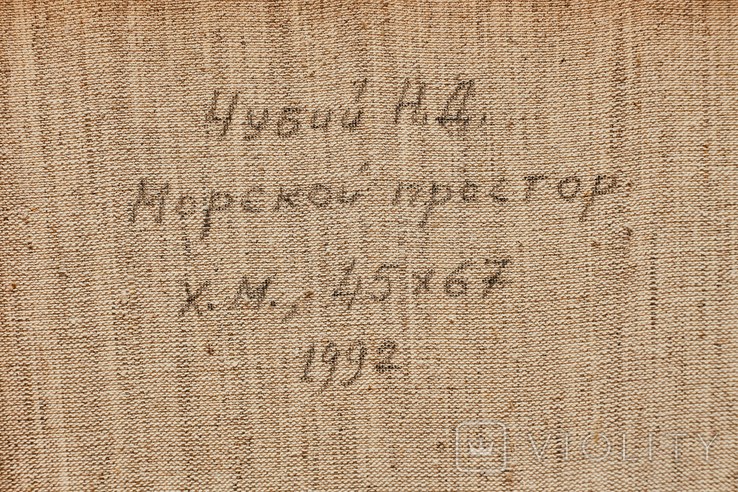 Чубий Н.Д.
Морской простор.
х.м., 45х67
1992
VIOLITY